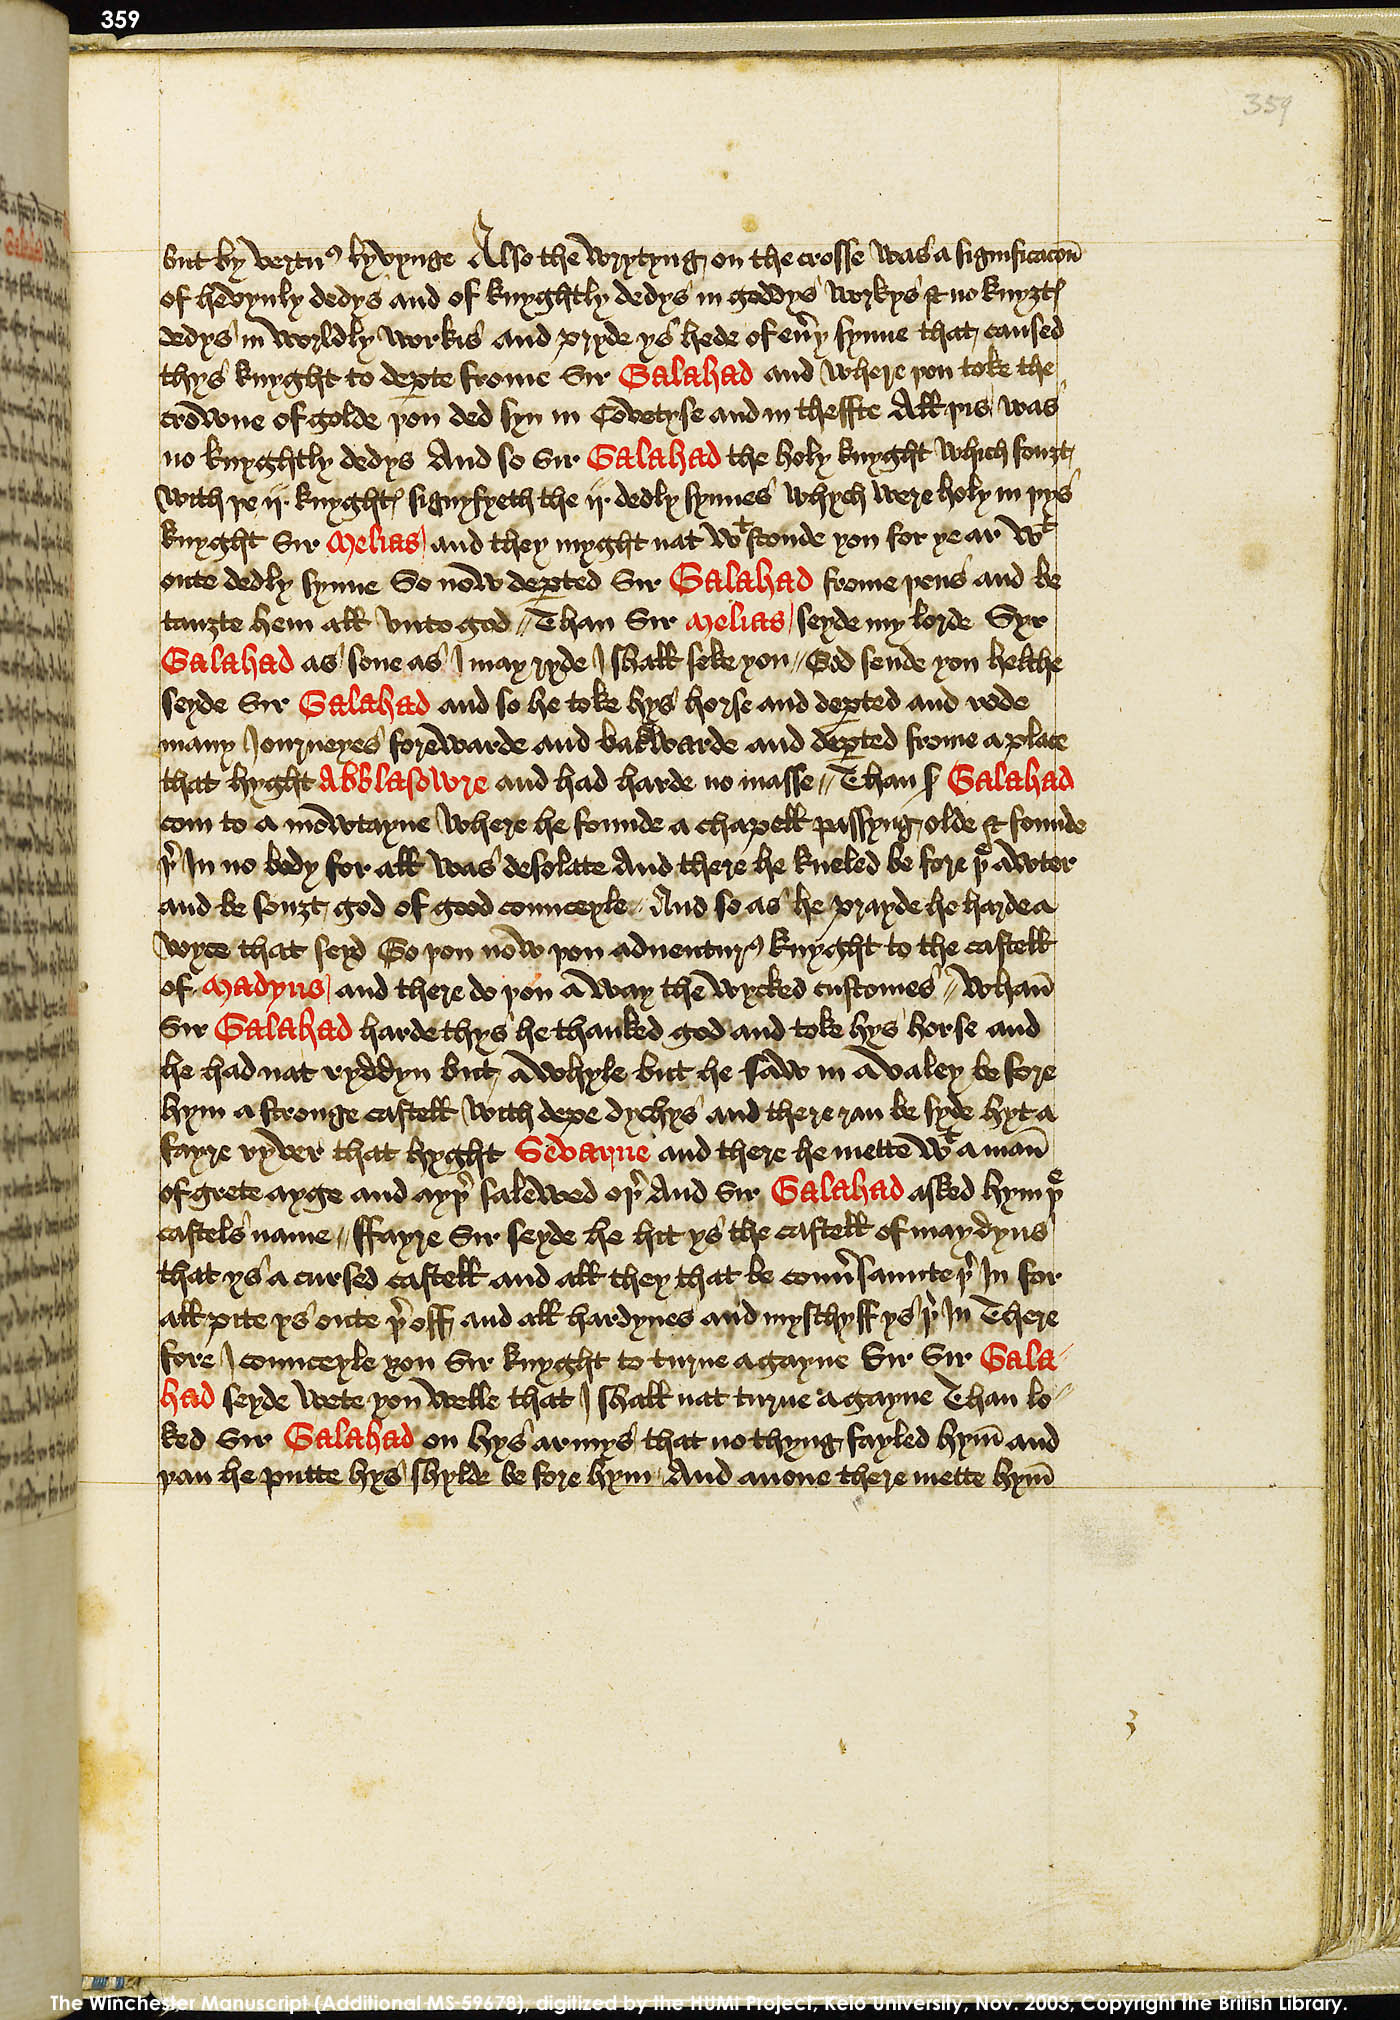 359
359
but by vertuꝰ lyvynge Also the wrytyng on the crosse was a significacōn
of hevynly dedys and of knyghtly dedys in goddys workys & no knyȝtꝭ
dedys in worldly workis and pryde ys hede of eũy synne that caused
thys knyght to deꝑte frome Sir Galahad and where þou toke the
crowne of golde þou ded syn in Covetyse and in theffte All þis was
no knyghtly dedys And so Sir Galahad the holy knyght which fouȝt
with þe ij knyghtꝭ signyfyeth the ij dedly synnes whych were holy in þys
knyght Sir Melias and they myght nat wᵗstonde you for ye ar wᵗ
oute dedly synne So now deꝑted Sir Galahad frome þens and be
tauȝte hem all vnto god // Than Sir Melias seyde my lorde Syr
Galahad as sone as I may ryde I shall seke you // God sende you helthe
seyde Sir Galahad and so he toke hys horse and deꝑted and rode
many Journeyes forewarde and bakwarde and deꝑted frome a place
that hyght Abblasowre and had harde no masse // Than S Galahad
com to a mowtayne where he founde a chapell passyng olde & founde
þ̛ In no body for all was desolate And there he kneled be fore þᵉ awter
and be souȝt god of good counceyle // And so as he prayde he harde a
woyce that seyd Go þou now þou aduenturꝰ knyght to the castell
of Madyns and there do þou a way the wycked customes // Whan̄
Sir Galahad harde thys he thanked god and toke hys horse and
he had nat ryddyn but a whyle but he saw in a valey be fore
hym a stronge castell with depe dychys and there ran be syde hyt a
fayre ryver that hyght Sevarne and there he mette wᵗ a man̄
of grete ayge and ayþ̛ salewed oþ̛ And Sir Galahad asked hym þᵉ
castels name // ffayre Sir seyde he hit ys the castell of maydyns
that ys a cursed castell and all they that be coũsaunte þ̛ In for
all pite ys oute þ̛ off and all hardynes and myschyff ys þ̛ In There
fore I counceyle you Sir knyght to turne agayne Sir Sir Gala⸗
had seyde wete you welle that I shall nat turne a gayne Than lo⸗
ked Sir Galahad on hys armys that no thyng fayled hym̄ and
þan he putte hys shylde be fore hym // And anone there mette hym̄
The Winchester Manuscript (Additional MS 59678), digitized by the HUMI Project, Keio University, Nov. 2003, Copyright the British Library.